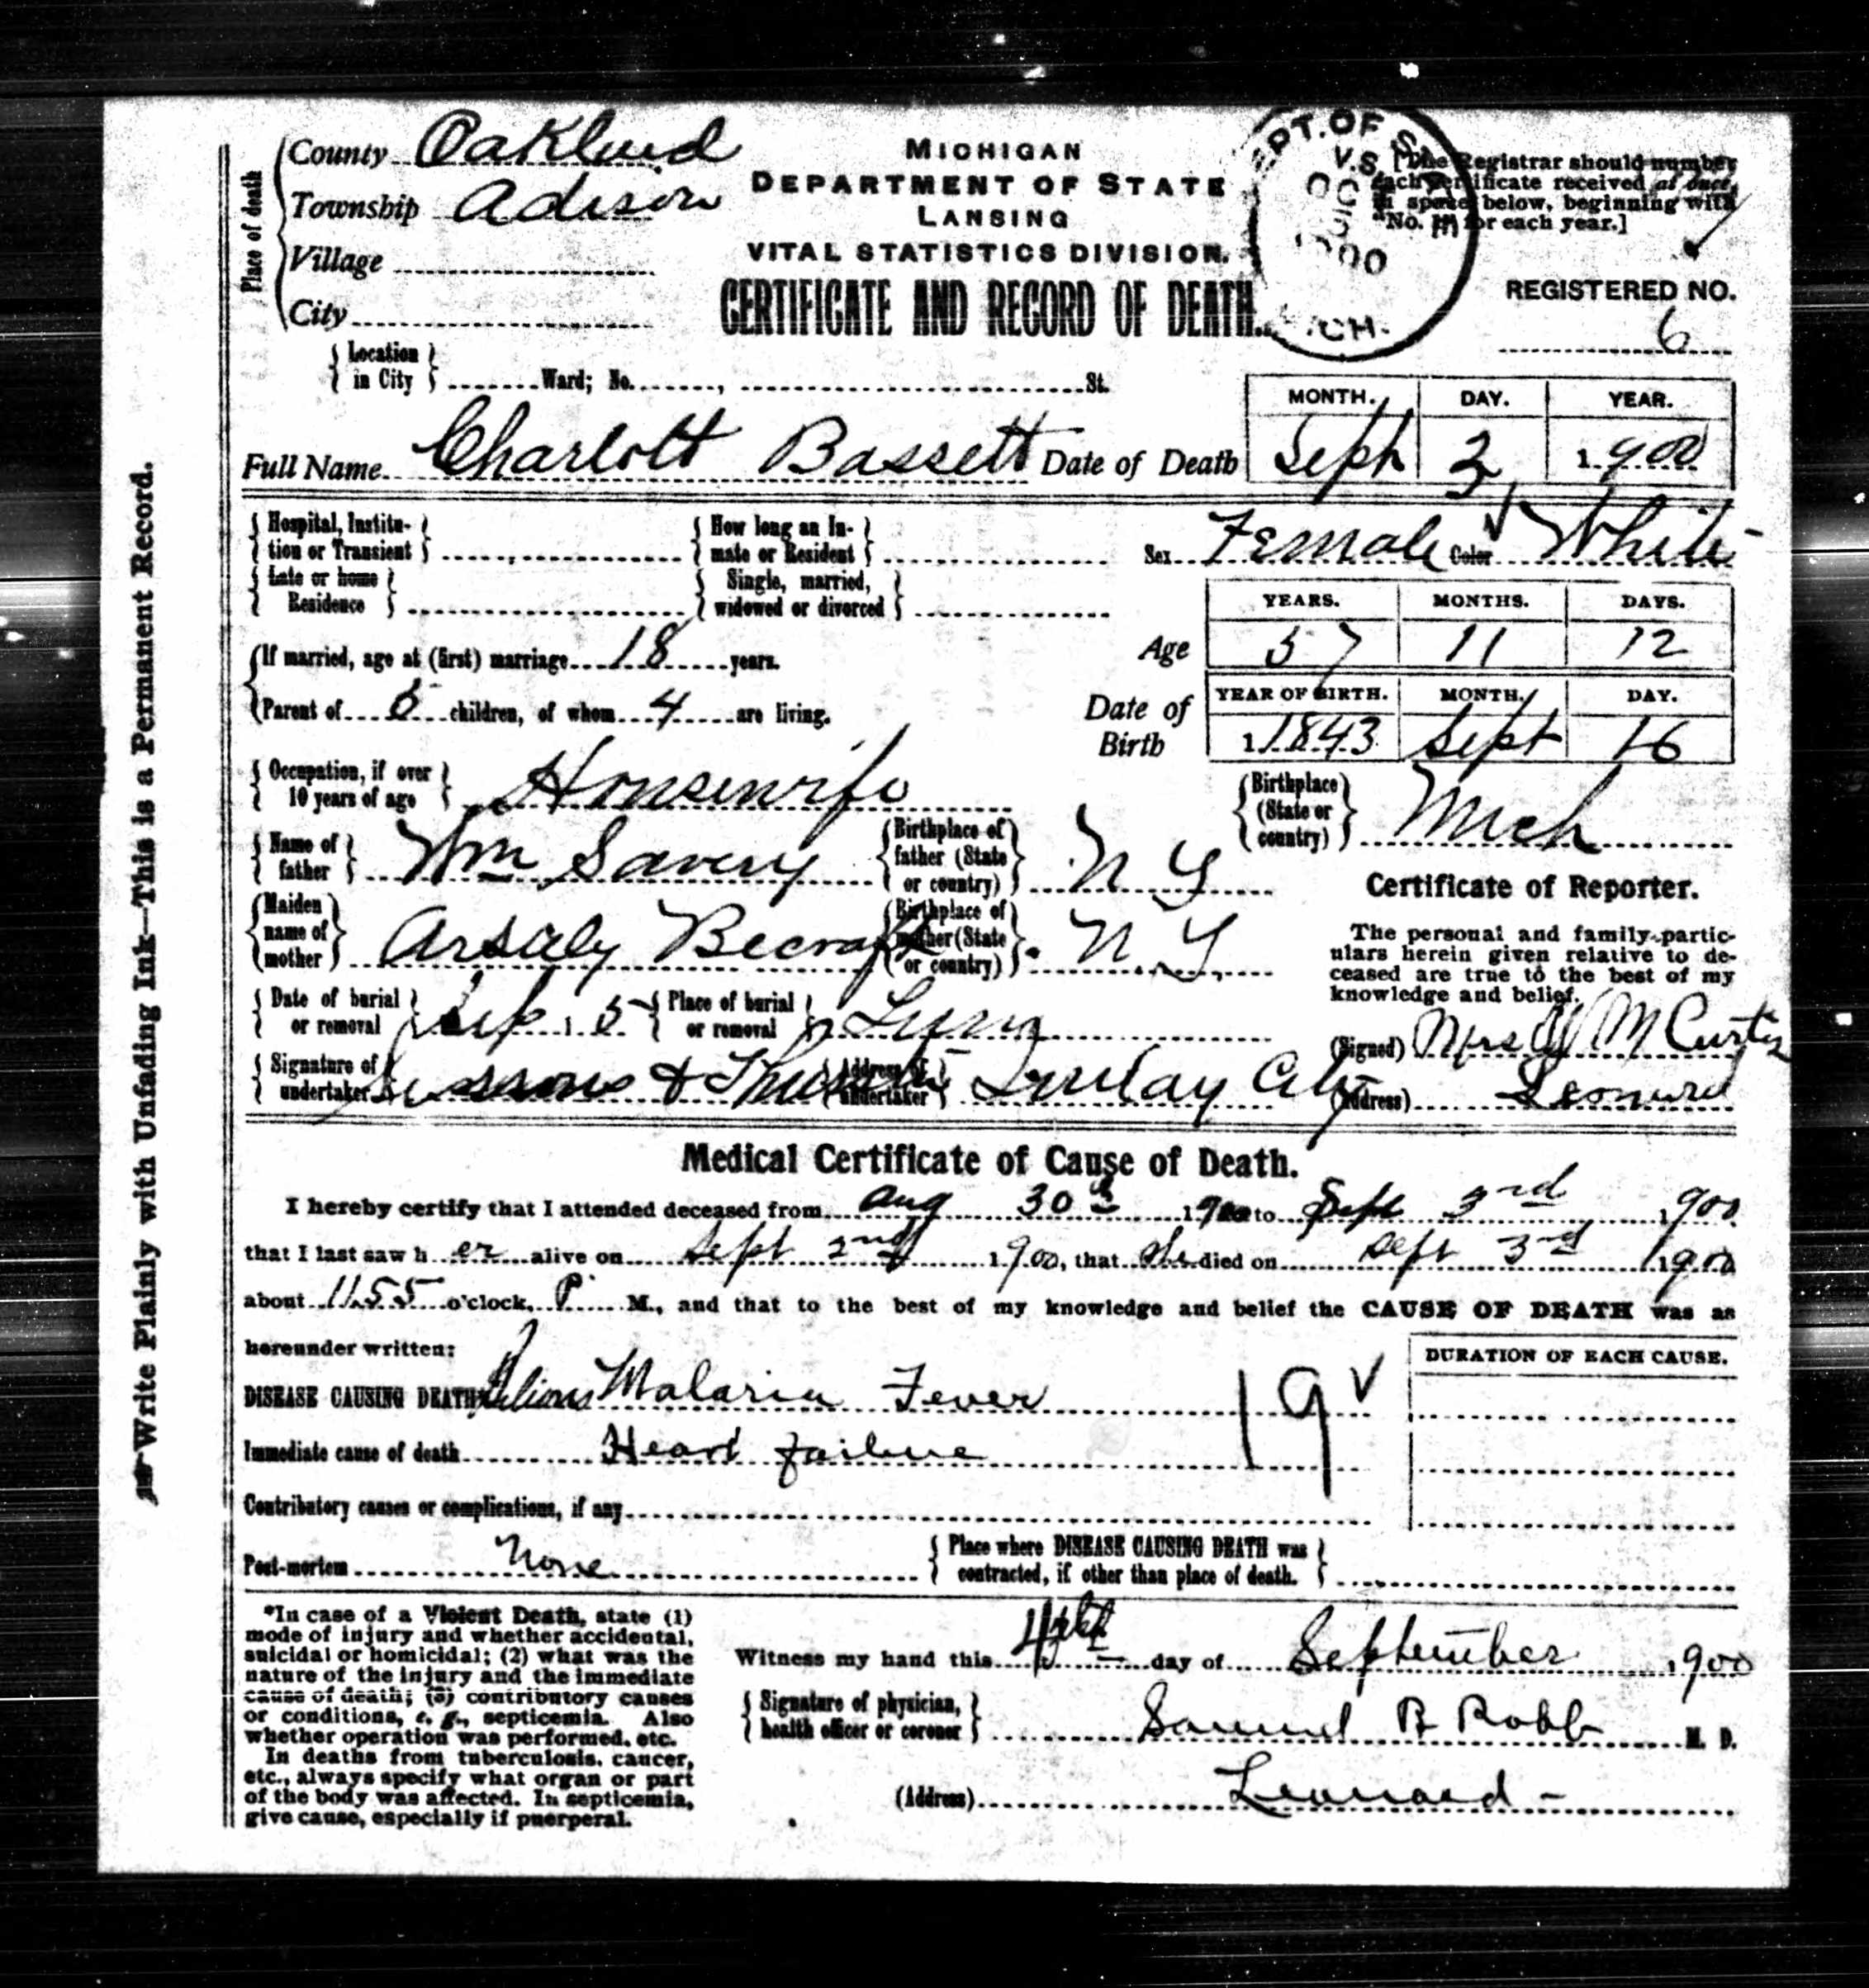 Write Plainly with Unfading Ink—This is a Permanent Record.
Place of death
County Oakland
Township Adison
Village
City
MICHIGAN
DEPARTMENT OF STATE
LANSING
VITAL STATISTICS DIVISION.
CERTIFICATE AND RECORD OF DEATH.
[The Registrar should number
each certificate received at once,
in space below, beginning with
"No. 1" for each year.]
REGISTERED NO.
6
Location in City Ward; No. , St.
MONTH. DAY. YEAR.
Full Name Charlott Bassett Date of Death Sept 3 1900
Hospital, Institution or Transient How long an Inmate or Resident Sex Female Color White
Late or home Residence Single, married, widowed or divorced
YEARS. MONTHS. DAYS.
If married, age at (first) marriage 18 years. Age 57 11 12
YEAR OF BIRTH. MONTH. DAY.
Parent of 5 children, of whom 4 are living. Date of Birth 1 1843 Sept 16
Occupation, if over 10 years of age Housewife Birthplace (State or country) Mich
Name of father Wm Savery Birthplace of father (State or country) N Y
Maiden name of mother Becraft Birthplace of mother (State or country) N.Y.
Date of burial or removal Sep. 5 Place of burial or removal Lynn
Signature of undertaker Address of undertaker Imlay City
Certificate of Reporter.
The personal and family partic-
ulars herein given relative to de-
ceased are true to the best of my
knowledge and belief.
(Signed) Mrs M Curtis
(Address) Leonard
Medical Certificate of Cause of Death.
I hereby certify that I attended deceased from Aug 30 1900 to Sept 3rd 1900
that I last saw h er alive on Sept 2nd 1900, that she died on Sept 3rd 1900
about 11.55 o'clock, P. M., and that to the best of my knowledge and belief the CAUSE OF DEATH was as
hereunder written:
DURATION OF EACH CAUSE.
DISEASE CAUSING DEATH* Bilious Malaria Fever 19
Immediate cause of death Heart failure
Contributory causes or complications, if any
Post-mortem None Place where DISEASE CAUSING DEATH was contracted, if other than place of death.
*In case of a Violent Death, state (1)
mode of injury and whether accidental,
suicidal or homicidal; (2) what was the
nature of the injury and the immediate
cause of death; (3) contributory causes
or conditions, e. g., septicemia. Also
whether operation was performed, etc.
In deaths from tuberculosis, cancer,
etc., always specify what organ or part
of the body was affected. In septicemia,
give cause, especially if puerperal.
Witness my hand this 4th day of September 1900
Signature of physician, health officer or coroner Samuel B Robb M. D.
(Address) Leonard -